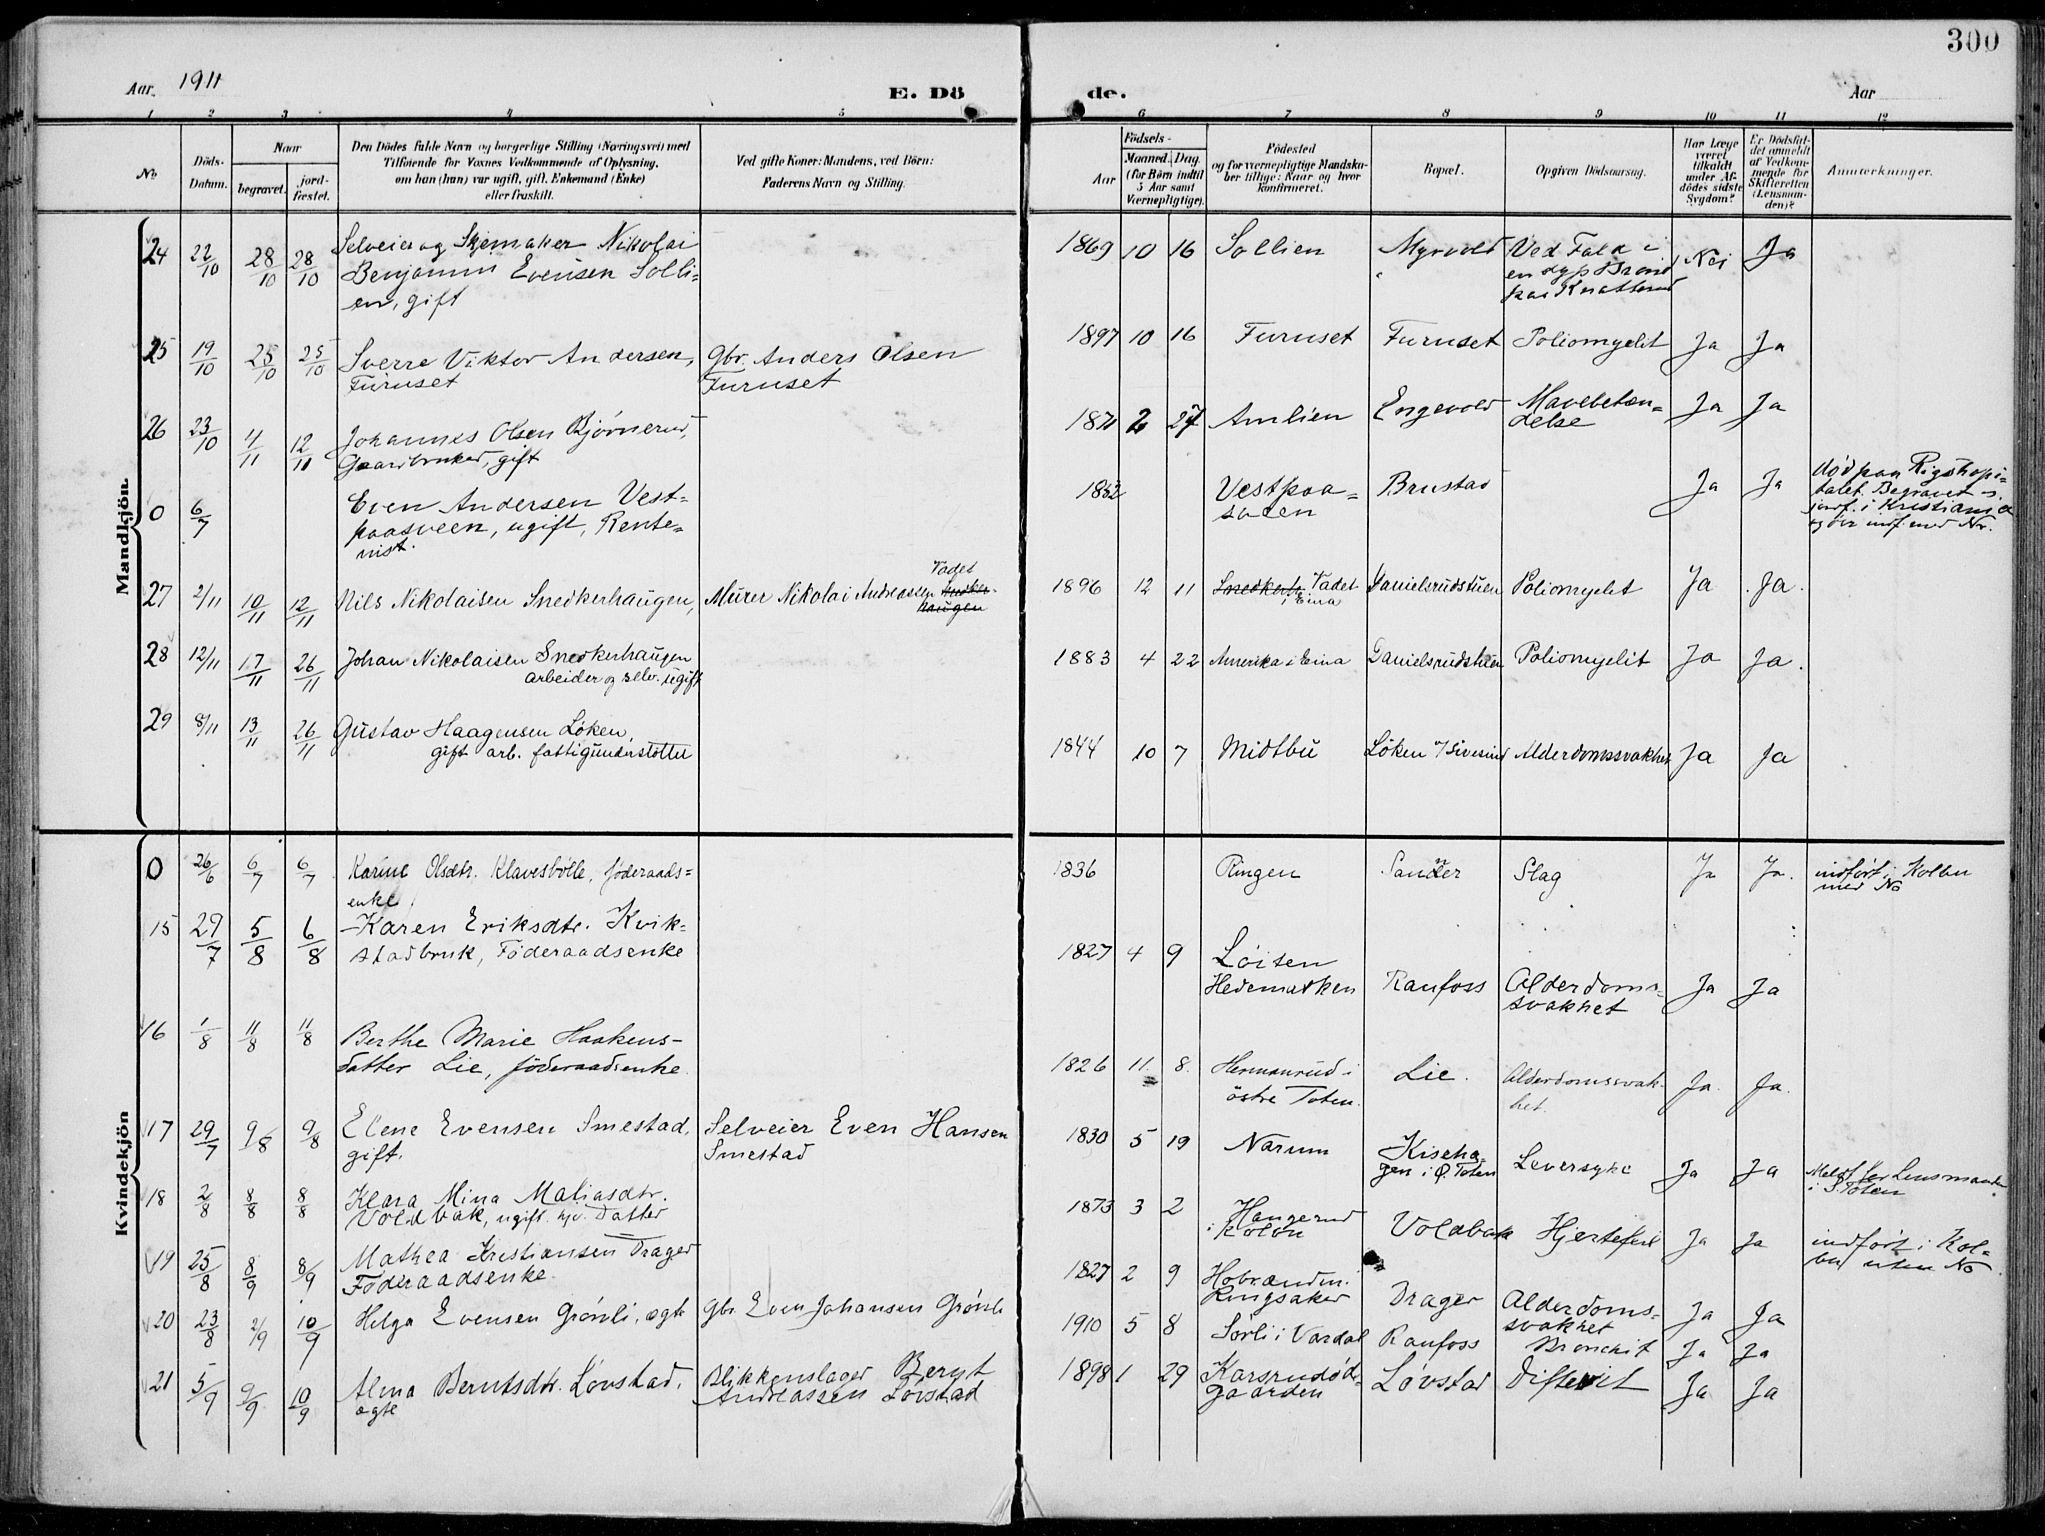 300
Aar. 1911
E. Dö
de.
Aar
1 2 3 4 5 6 7 8 9 10 11 12
No
Döds-
Datum.
Naar
begravet.
jord-
fæstet.
Den Dödes fulde Navn og borgerlige Stilling (Næringsvei) med
Tilföiende for Voxnes Vedkommende af Oplysning,
om han (hun) var ugift, gift, Enkemand (Enke)
eller fraskilt.
Ved gifte Koner: Mandens, ved Börn:
Faderens Navn og Stilling.
Födsels-
Aar
Maaned. Dag.
(for Börn indtil
5 Aar samt
Værnepligtige).
Födested
og for værnepligtige Mandska-
ber tillige: Naar og hvor
konfirmeret.
Bopæl.
Opgiven Dödsaarsag.
Har Læge
været
tilkaldt
under Af-
dödes sidste
Sygdom?
Er Dödsfal-
det anmeldt
af Vedkom-
mende for
Skifteretten
(Lensman-
den)?
Anmærkninger.
Mandkjön.
24 22/10 28/10 28/10 Selveier og Skjemaker Nikolai
Benjamin Evensen Solli-
en, gift
1869 10 16 Sollien Myrvold Ved Fald i
en dyp Brönd
paa Knatterud
Nei Ja
25 19/10 25/10 25/10 Sverre Viktor Andersen,
Furuset
Gbr. Anders Olsen
Furuset
1897 10 16 Furuset Furuset Poliomyelit Ja Ja
26 23/10 4/11 12/11 Johannes Olsen Bjørnerud,
Gaardbruker, gift
1871 2 27 Amlien Engevold Mavebetæn-
delse
Ja Ja
0 6/7 Even Andersen Vest-
paasveen, ugift, Rente-
nist.
1852 Vestpaa-
sveen
Brustad Ja Ja
død paa Rigshopi-
talet. Begravet
jordf. i Kristiania
27 2/11 10/11 12/11 Nils Nikolaisen Snedkerhaugen, Murer Nikolai Andreassen Snedker-
haugen
Vadet
1896 12 11 Vadet
i Eina
Danielsrudstuen Poliomyelit Ja Ja.
28 12/11 17/11 26/11 Johan Nikolaisen Snedkerhaugen
arbeider og selv. ugift
1883 4 22 Amerika i Eina Danielsrudstuen Poliomyelit Ja Ja.
29 8/11 13/11 26/11 Gustav Haagensen Løken,
gift arb. fattigunderstøttet
1844 10 7 Midtbu Løken u/Sivesind Alderdomssvakhet Ja Ja
Kvindekjön
0 26/6 6/7 6/7 Karine Olsdtr. Klavesbølle, føderaads-
enke
1836 Ringen Sander Slag Ja Ja. indført i Kolbu
med No
15 29/7 5/8 6/8 Karen Eriksdtr. Kvik-
stadbruk, Föderaadsenke
1827 4 9 Løiten
Hedemarken
Raufoss Alderdoms-
svakhet
Ja Ja
16 1/8 11/8 11/8 Berthe Marie Haakens-
datter Lie, føderaadsenke.
1826 11 8. Hermanrud i
östre Toten.
Lie. Alderdomssvak-
het.
Ja. Ja.
17 29/7 9/8 9/8 Elene Evensen Smestad,
gift.
Selveier Even Hansen
Smestad
1830 5 19 Narum Kiseha-
gen i Ø. Toten
Leversyke Ja Ja
Meldt for Lensmanden
i S. Toten
18 2/8 8/8 8/8 Klara Mina Maliasdtr.
Voldbak, ugift. hjv. Datter
1873 3 2 Haugerud
i Kolbu
Voldbak Hjertefeil Ja Ja indført i Kol-
bu uten No
19 25/8 8/9 8/9 Mathea Kristiansen Drager
Föderaadsenke.
1827 2 9 Hobranden.
Ringsaker
Drager Alderdoms-
svakhet
Ja Ja
20 23/8 2/9 10/9 Helga Evensen Grönli, ægte Gbr. Even Johansen Grönli
1910 5 8 Sørli i Vardal Raufoss Bronchit Ja Ja
21 5/9 9/9 10/9 Alma Berntsdtr. Løvstad,
ægte
Blikkenslager Bernt
Andreassen Løvstad
1898 1 29 Karsrudød-
gaarden
Løvstad Difterit Ja Ja